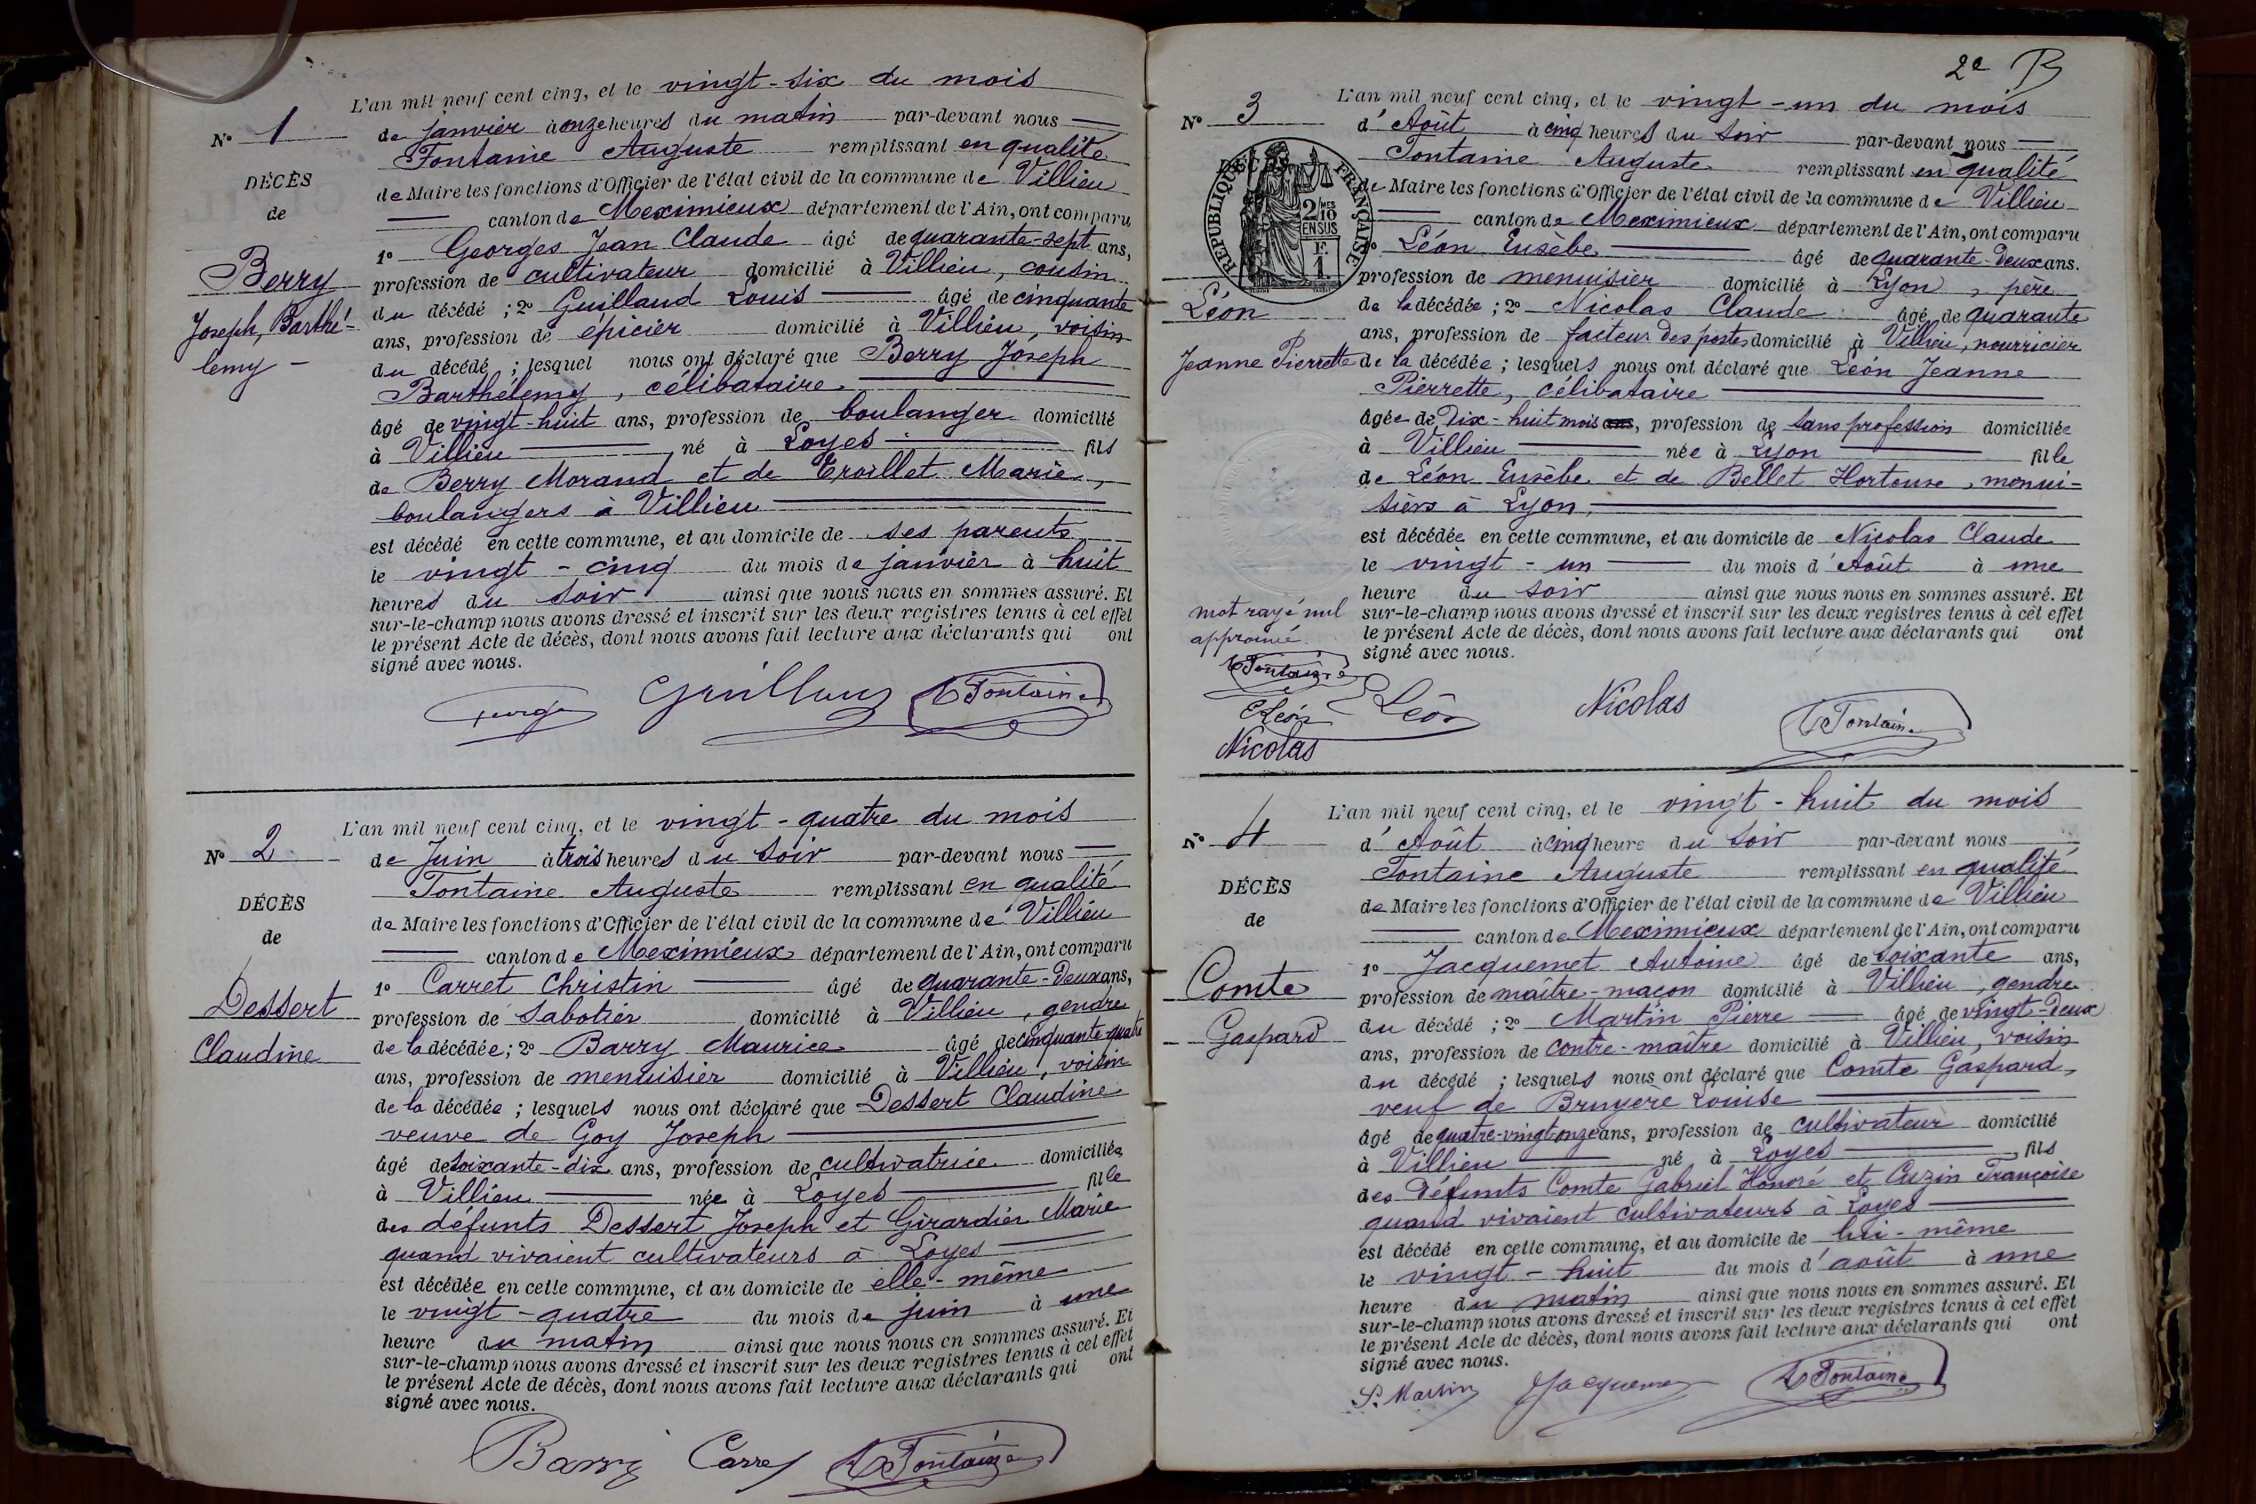 N° 1
DÉCÈS
de
Berry
Joseph, Barthé-
lemy -
L'an mil neuf cent cinq, et le vingt-six du mois
de janvier à onze heures du matin par-devant nous
Fontaine Auguste remplissant en qualité
de Maire les fonctions d'Officier de l'état civil de la commune de Villieu
canton de Meximieux département de l'Ain, ont comparu
1° Georges Jean Claude âgé de quarante-sept ans,
profession de cultivateur domicilié à Villieu, cousin
du décédé ; 2° Guillaud Louis âgé de cinquante
ans, profession de épicier domicilié à Villieu, voisin
du décédé ; lesquel nous ont déclaré que Berry Joseph
Barthélemy, célibataire
âgé de vingt-huit ans, profession de boulanger domicilié
à Villieu né à Loyes fils
de Berry Morand et de Troillet Marie,
boulangers à Villieu
est décédé en cette commune, et au domicile de ses parents
le vingt-cinq du mois de janvier à huit
heures du soir ainsi que nous nous en sommes assuré. Et
sur-le-champ nous avons dressé et inscrit sur les deux registres tenus à cet effet
le présent Acte de décès, dont nous avons fait lecture aux déclarants qui ont
signé avec nous.
George Guillaud A Fontaine
N° 2
DÉCÈS
de
Dessert
Claudine
L'an mil neuf cent cinq, et le vingt-quatre du mois
de Juin à trois heures du soir par-devant nous
Fontaine Auguste remplissant en qualité
de Maire les fonctions d'Officier de l'état civil de la commune de Villieu
canton de Meximieux département de l'Ain, ont comparu
1° Carret Christin âgé de quarante-deux ans,
profession de sabotier domicilié à Villieu, gendre
de la décédée ; 2° Barry Maurice âgé de cinquante-quatre
ans, profession de menuisier domicilié à Villieu, voisin
de la décédée ; lesquels nous ont déclaré que Dessert Claudine
veuve de Goy Joseph
âgé de soixante-dix ans, profession de cultivatrice domiciliée
à Villieu née à Loyes fille
des défunts Dessert Joseph et Girardier Marie
quand vivaient cultivateurs à Loyes
est décédée en cette commune, et au domicile de elle-même
le vingt-quatre du mois de juin à une
heure du matin ainsi que nous nous en sommes assuré. Et
sur-le-champ nous avons dressé et inscrit sur les deux registres tenus à cet effet
le présent Acte de décès, dont nous avons fait lecture aux déclarants qui ont
signé avec nous.
Barry Carret A Fontaine
2e B
N° 3
RÉPUBLIQUE FRANÇAISE
2/10 MES
EN SUS
F.
1.
Léon
Jeanne Pierrette
L'an mil neuf cent cinq, et le vingt-un du mois
d'Août à cinq heures du soir par-devant nous
Fontaine Auguste remplissant en qualité
de Maire les fonctions d'Officier de l'état civil de la commune de Villieu
canton de Meximieux département de l'Ain, ont comparu
1° Léon Eusèbe âgé de quarante-deux ans.
profession de menuisier domicilié à Lyon, père
de la décédée ; 2° Nicolas Claude âgé de quarante
ans, profession de facteur des postes domicilié à Villieu, nourricier
de la décédée ; lesquels nous ont déclaré que Léon Jeanne
Pierrette, célibataire
âgée de dix-huit mois ans, profession de sans profession domiciliée
à Villieu née à Lyon fille
de Léon Eusèbe et de Bellet Hortense, menui-
siers à Lyon,
est décédée en cette commune, et au domicile de Nicolas Claude
le vingt-un du mois d'Août à une
heure du soir ainsi que nous nous en sommes assuré. Et
sur-le-champ nous avons dressé et inscrit sur les deux registres tenus à cet effet
le présent Acte de décès, dont nous avons fait lecture aux déclarants qui ont
signé avec nous.
mot rayé nul
approuvé
A Fontaine
E Léon
Nicolas
Léon Nicolas A Fontaine
N° 4
DÉCÈS
de
Comte
Gaspard
L'an mil neuf cent cinq, et le vingt-huit du mois
d'Août à cinq heure du soir par-devant nous
Fontaine Auguste remplissant en qualité
de Maire les fonctions d'Officier de l'état civil de la commune de Villieu
canton de Meximieux département de l'Ain, ont comparu
1° Jacquemet Antoine âgé de soixante ans,
profession de maître-maçon domicilié à Villieu, gendre
du décédé ; 2° Martin Pierre âgé de vingt-deux
ans, profession de contre-maître domicilié à Villieu, voisin
du décédé ; lesquels nous ont déclaré que Comte Gaspard,
veuf de Bruyère Louise
âgé de quatre-vingt onze ans, profession de cultivateur domicilié
à Villieu né à Loyes fils
des défunts Comte Gabriel Honoré et Cuzin Françoise
quand vivaient cultivateurs à Loyes
est décédé en cette commune, et au domicile de lui-même
le vingt-huit du mois d'août à une
heure du matin ainsi que nous nous en sommes assuré. Et
sur-le-champ nous avons dressé et inscrit sur les deux registres tenus à cet effet
le présent Acte de décès, dont nous avons fait lecture aux déclarants qui ont
signé avec nous.
P. Martin Jacquemet A Fontaine